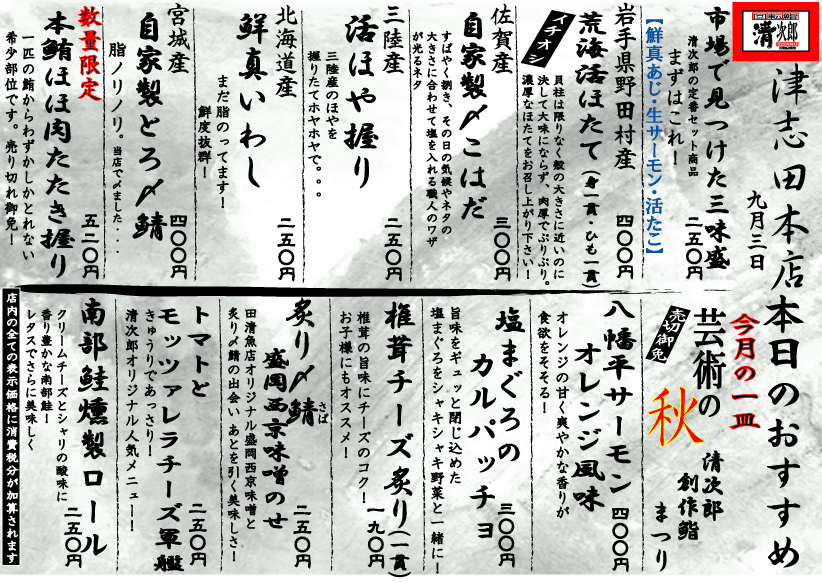 回転鮨
清次郎
津志田本店本日のおすすめ
九月三日
市場で見つけた三味盛
二五〇円
清次郎の定番セット商品
まずはこれ！
【鮮真あじ・生サーモン・活たこ】
岩手県野田村産
荒海活ほたて（身一貫・ひも一貫）
四〇〇円
イチオシ
貝柱は限りなく殻の大きさに近いのに
決して大味にならず、肉厚でぷりぷり。
濃厚なほたてをお召し上がり下さい！
佐賀産
自家製〆こはだ
三〇〇円
すばやく捌き、その日の気候やネタの
大きさに合わせて塩を入れる職人のワザ
が光るネタ
三陸産
活ほや握り
二五〇円
三陸産のほやを
握りたてホヤホヤで。。。
北海道産
鮮真いわし
二五〇円
まだ脂のってます！
鮮度抜群！
宮城産
自家製とろ〆鯖
四〇〇円
脂ノリノリ。当店で〆ました・・・
数量限定
本鮪ほほ肉たたき握り
五二〇円
一匹の鮪からわずかしかとれない
希少部位です。売り切れ御免！
今月の一皿
芸術の秋
売切御免
清次郎
創作鮨
まつり
八幡平サーモン
オレンジ風味
四〇〇円
オレンジの甘く爽やかな香りが
食欲をそそる！
塩まぐろの
カルパッチョ
三〇〇円
旨味をギュッと閉じ込めた
塩まぐろをシャキシャキ野菜と一緒に！
椎茸チーズ炙り（一貫）
一九〇円
椎茸の旨味にチーズのコク！
お子様にもオススメ！
炙り〆鯖
さば
盛岡西京味噌のせ
二五〇円
田清魚店オリジナル盛岡西京味噌と
炙り〆鯖の出会い あとを引く美味しさ！
トマトと
モッツァレラチーズ軍艦
二五〇円
きゅうりであっさり！
清次郎オリジナル人気メニュー！
南部鮭燻製ロール
二五〇円
クリームチーズとシャリの酸味に
香り豊かな南部鮭！
レタスでさらに美味しく
店内の全ての表示価格に消費税分が加算されます